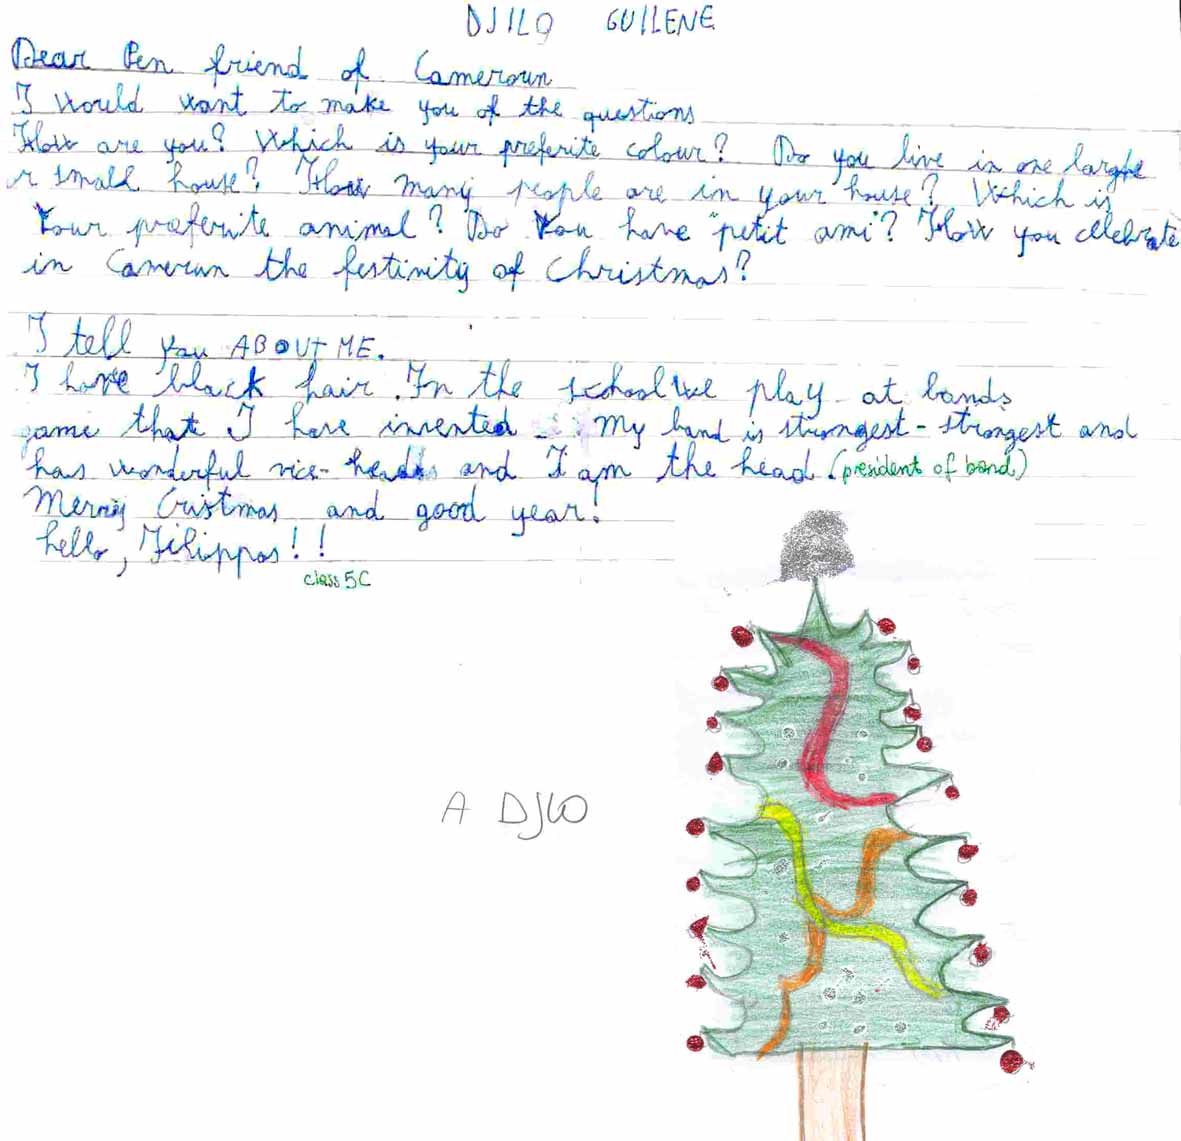 DJILO GUILENE
Dear Pen friend of Cameroun
I Would want to make you of the questions
How are you? Which is your preferite colour? Do you live in one larghe
or small house? How many people are in your house? Which is
Your preferite animal? Do You have "petit ami"? How you celebrate
in Camerun the festinity of Christmas?
I tell you ABOUT ME.
I have black hair. In the school we play at bands
game that I have invented. My band is strongest-strongest and
has wonderful vice-heads and I am the head (president of band)
Merry Cristmas and good year!
hello, Filippos!!
class 5C
A DJILO